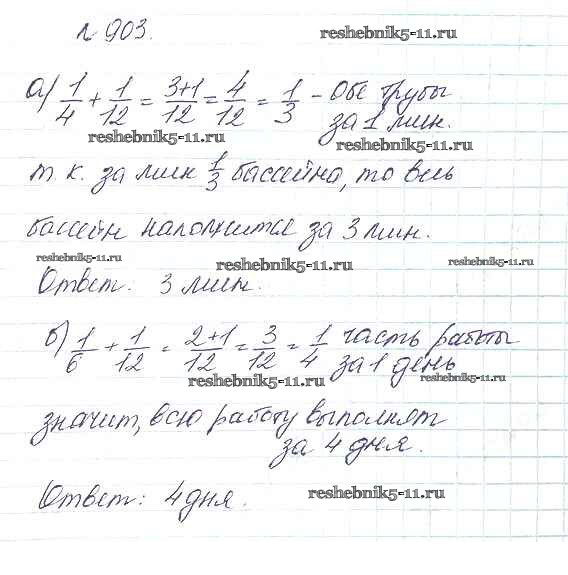 № 903.
reshebnik5-11.ru
а) 1/4 + 1/12 = 3+1/12 = 4/12 = 1/3 - Обе трубы
за 1 мин.
reshebnik5-11.ru
reshebnik5-11.ru
т.к. за мин 1/3 бассейна, то весь
бассейн наполнится за 3 мин.
reshebnik5-11.ru
reshebnik5-11.ru
reshebnik5-11.ru
Ответ: 3 мин.
б) 1/6 + 1/12 = 2+1/12 = 3/12 = 1/4 часть работы
за 1 день
reshebnik5-11.ru
reshebnik5-11.ru
значит, всю работу выполнят
за 4 дня.
Ответ: 4 дня.
reshebnik5-11.ru